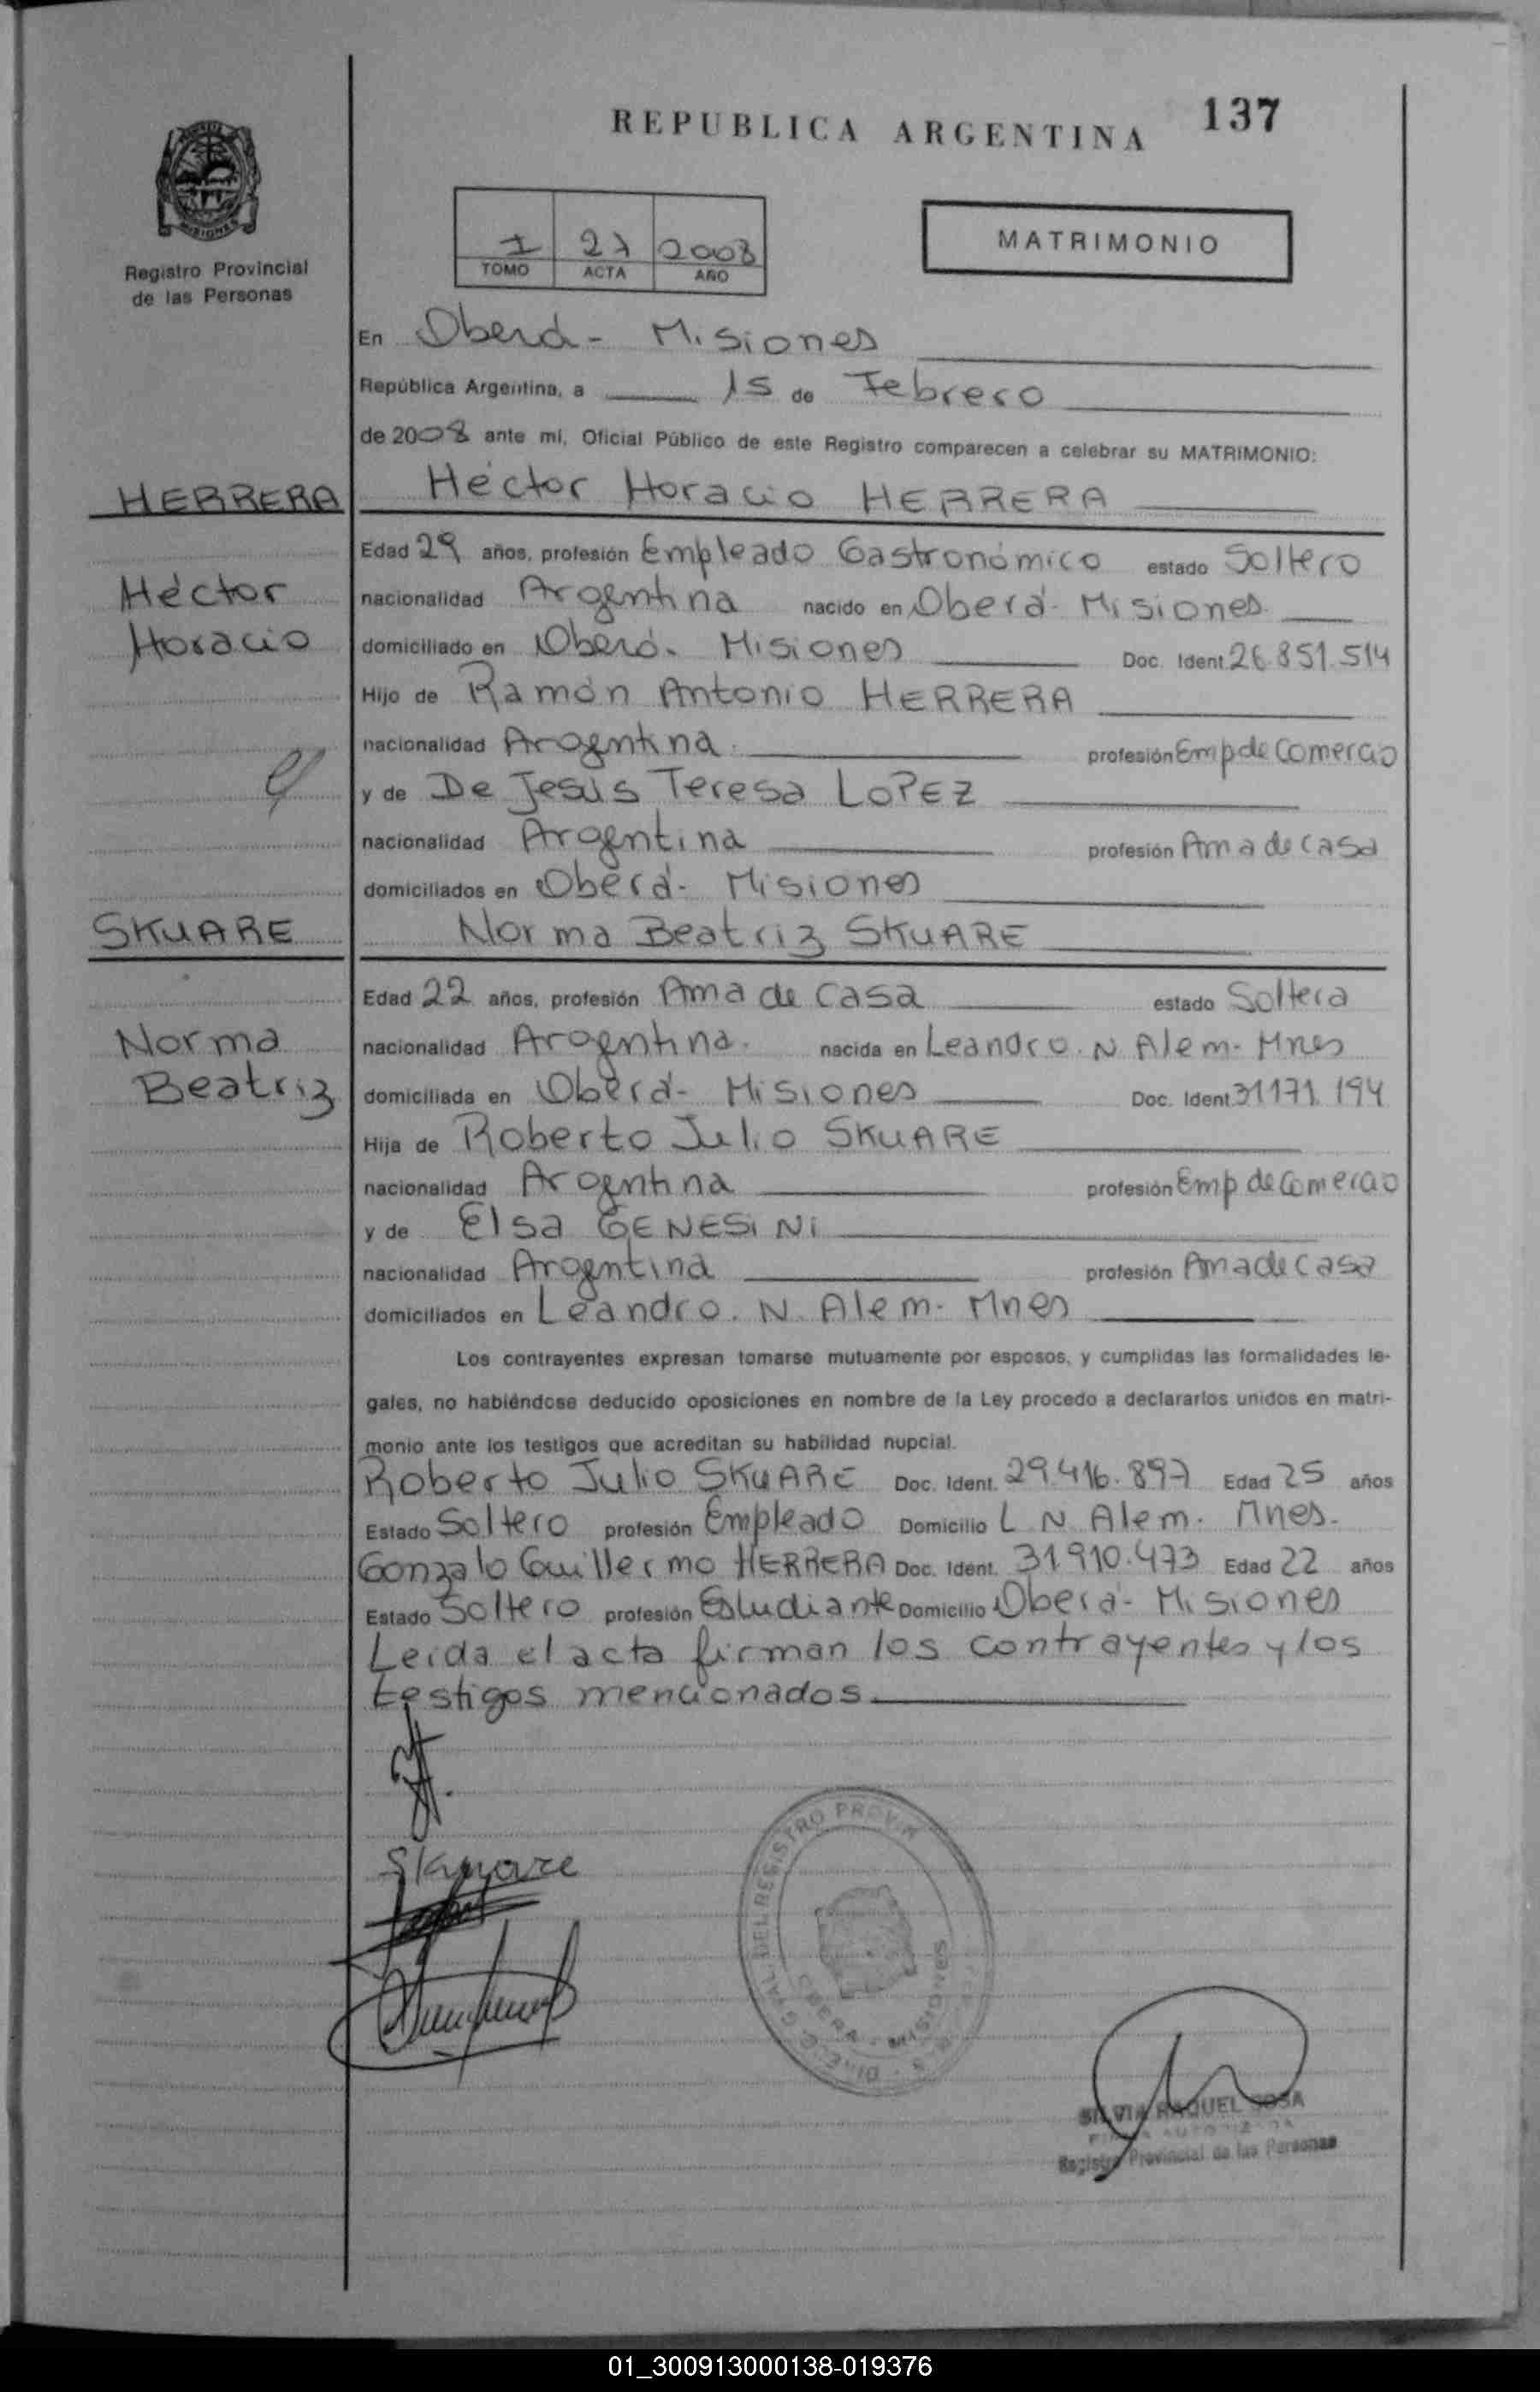 137
REPUBLICA ARGENTINA
MISIONES
Registro Provincial
de las Personas
1 27 2008
TOMO ACTA AÑO
MATRIMONIO
En Oberá - Misiones
República Argentina, a 15 de Febrero
de 2008 ante mí, Oficial Público de este Registro comparecen a celebrar su MATRIMONIO:
HERRERA Héctor Horacio HERRERA
Edad 29 años, profesión Empleado Gastronómico estado Soltero
Héctor nacionalidad Argentina nacido en Oberá - Misiones
Horacio domiciliado en Oberá - Misiones Doc. Ident. 26.851.514
Hijo de Ramón Antonio HERRERA
nacionalidad Argentina. profesión Emp de Comercio
y de De Jesús Teresa LOPEZ
nacionalidad Argentina profesión Ama de casa
domiciliados en Oberá - Misiones
SKUARE Norma Beatriz SKUARE
Edad 22 años, profesión Ama de casa estado Soltera
Norma nacionalidad Argentina. nacida en Leandro. N Alem - Mnes
Beatriz domiciliada en Oberá - Misiones Doc. Ident. 31171.194
Hija de Roberto Julio SKUARE
nacionalidad Argentina profesión Emp de Comercio
y de Elsa GENESINI
nacionalidad Argentina profesión Ama de casa
domiciliados en Leandro. N. Alem - Mnes
Los contrayentes expresan tomarse mutuamente por esposos, y cumplidas las formalidades le-
gales, no habiéndose deducido oposiciones en nombre de la Ley procedo a declararlos unidos en matri-
monio ante los testigos que acreditan su habilidad nupcial.
Roberto Julio SKUARE Doc. Ident. 29.416.897 Edad 25 años
Estado Soltero profesión Empleado Domicilio L N Alem - Mnes.
Gonzalo Guillermo HERRERA Doc. Ident. 31.910.473 Edad 22 años
Estado Soltero profesión Estudiante Domicilio Oberá - Misiones
Leída el acta firman los contrayentes y los
testigos mencionados.
Skuare
DEL REGISTRO
OBERA - MISIONES
SILVIA RAQUEL SOSA
FIRMA AUTORIZADA
Registro Provincial de las Personas
01_300913000138-019376